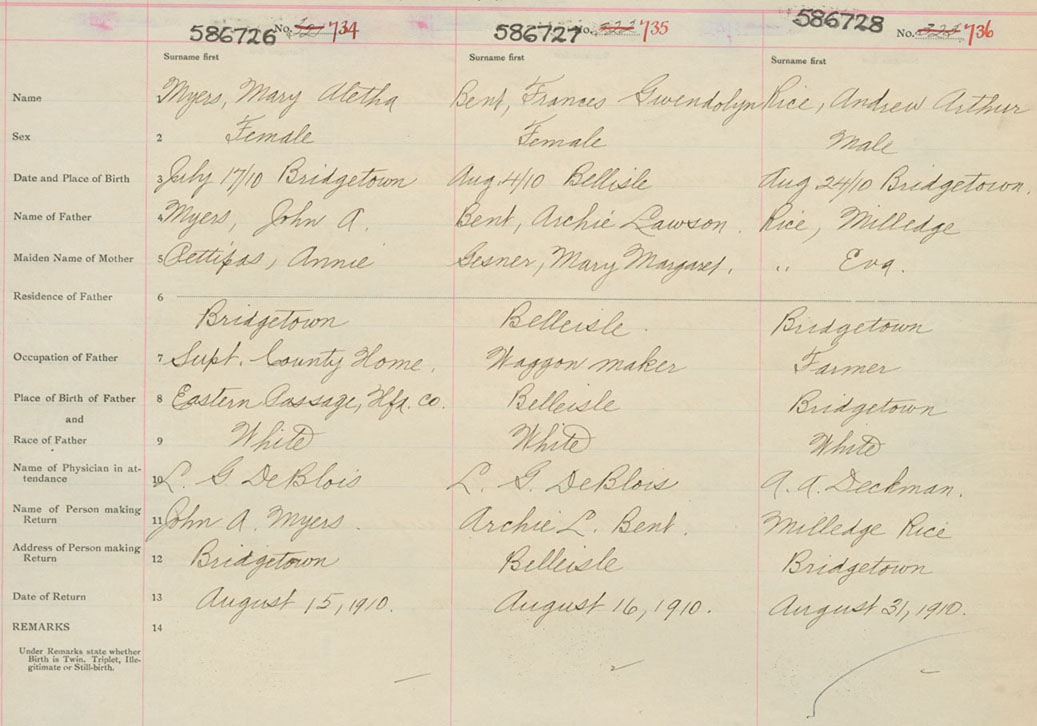 586726 No. 734 586727 No. 735 586728 No. 736
Surname first Surname first Surname first
Name Myers, Mary Aletha Bent, Frances Gwendolyn Rice, Andrew Arthur
Sex 2 Female Female Male
Date and Place of Birth 3 July 17/10 Bridgetown Aug. 4/10 Bellisle Aug 24/10 Bridgetown.
Name of Father 4 Myers, John A. Bent, Archie Lawson. Rice, Milledge
Maiden Name of Mother 5 Pettipas, Annie Gesner, Mary Margaret. " Eva.
Residence of Father 6
Bridgetown Belleisle. Bridgetown
Occupation of Father 7 Supt. County Home. Waggon maker Farmer
Place of Birth of Father 8 Eastern Passage, Hfx. Co. Belleisle Bridgetown
and
Race of Father 9 White White White
Name of Physician in at-
tendance 10 L. G. DeBlois L. G. DeBlois A. A. Deckman.
Name of Person making
Return 11 John A. Myers. Archie L. Bent. Milledge Rice
Address of Person making
Return 12 Bridgetown Belleisle Bridgetown
Date of Return 13 August 15, 1910. August 16, 1910. August 31, 1910.
REMARKS 14
Under Remarks state whether
Birth is Twin, Triplet, Ille-
gitimate or Still-birth.